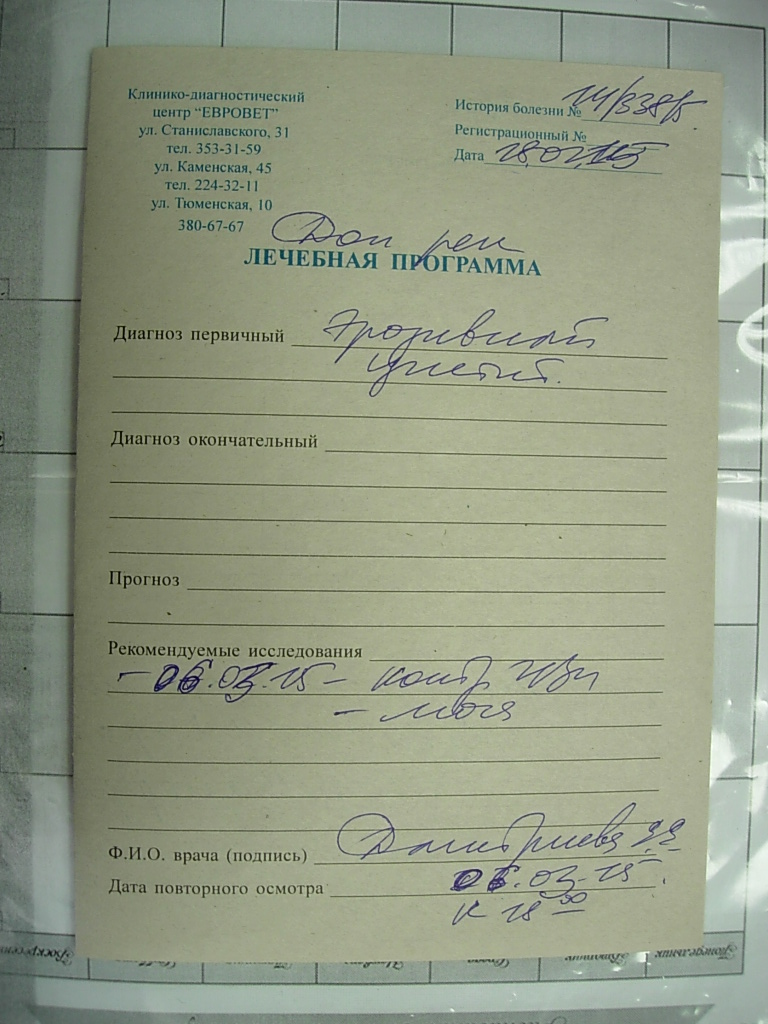 Клинико-диагностический
центр "ЕВРОВЕТ"
ул. Станиславского, 31
тел. 353-31-59
ул. Каменская, 45
тел. 224-32-11
ул. Тюменская, 10
380-67-67
История болезни № 14/33815
Регистрационный №
Дата
Дон
ЛЕЧЕБНАЯ ПРОГРАММА
Диагноз первичный Эрозивный
цистит.
Диагноз окончательный
Прогноз
Рекомендуемые исследования
- 06.03.15 - контр УЗИ
- моча
Ф.И.О. врача (подпись) Дмитриева
Дата повторного осмотра 06.03.15.
Воскресенье
Среда
Вторник
Понедельник